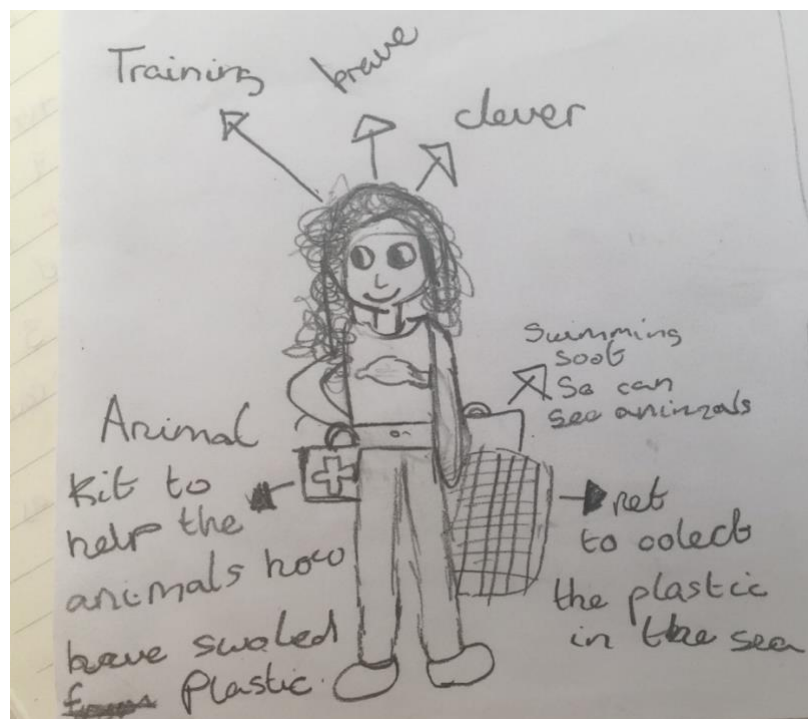 Training
brave
clever
Swimming
soot
So can
see animals
Animal
kit to
help the
animals how
have swoled
plastic.
net
to colect
the plastic
in the sea